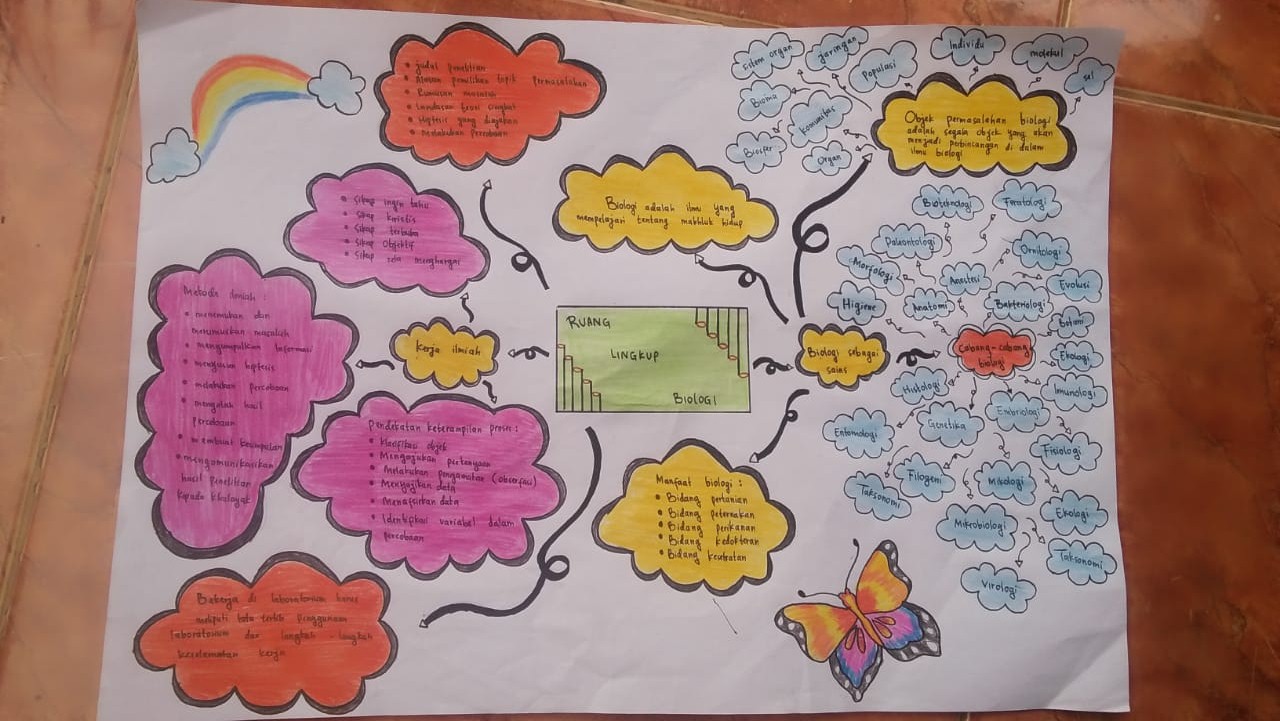 RUANG
LINGKUP
BIOLOGI
• judul penelitian
• Alasan pemilihan topik permasalahan
• Rumusan masalah
• Landasan teori singkat
• Hiptesis yang diajukan
• melakukan percobaan
• Sikap ingin tahu
• Sikap kristis
• Sikap terbuka
• Sikap Objektif
• Sikap rela menghargai
Kerja ilmiah
Metode ilmiah :
• menemukan dan
merumuskan masalah
• mengumpulkan informasi
• menyusun hiptesis
• melakukan percobaan
• mengolah hasil
percobaan
• membuat kesimpulan
• mengomunikasikan
hasil penelitian
kepada khalayak
Pendekatan keterampilan proses :
• Klasifikasi objek
• Mengajukan pertanyaan
• Melakukan pengamatan (observasi)
• Menyajikan data
• menafsirkan data
• Identifikasi variabel dalam
percobaan
Bekerja di laboratorium harus
meliputi tata tertib penggunaan
laboratorium dan langkah-langkah
keselamatan kerja
Biologi adalah ilmu yang
mempelajari tentang makhluk hidup
Biologi sebagai
sains
Manfaat biologi :
• Bidang pertanian
• Bidang peternakan
• Bidang perikanan
• Bidang kedokteran
• Bidang kesehatan
Objek permasalahan biologi
adalah segala objek yang akan
menjadi perbincangan di dalam
ilmu biologi
sistem organ
jaringan
Populasi
Individu
molekul
sel
Bioma
Komunitas
Biosfer
Organ
Cabang-cabang
biologi
Bioteknologi
Firatologi
Paleontologi
Ornitologi
Morfologi
Anestesi
Evolusi
Higiene
Anatomi
Bakteriologi
botani
Ekologi
Histologi
Imunologi
Genetika
Embriologi
Entomologi
Fisiologi
Filogeni
Mikologi
Taksonomi
Ekologi
Mikrobiologi
Taksonomi
Virologi